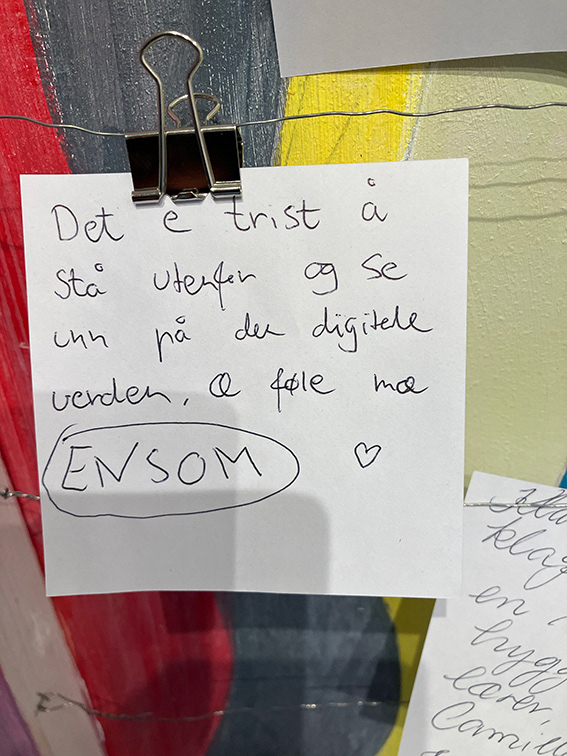 Det e trist å
stå utenfor og se
inn på den digitale
verden. Æ føle mæ
ENSOM ♡
klag
en
hygg
lærer,
Camill